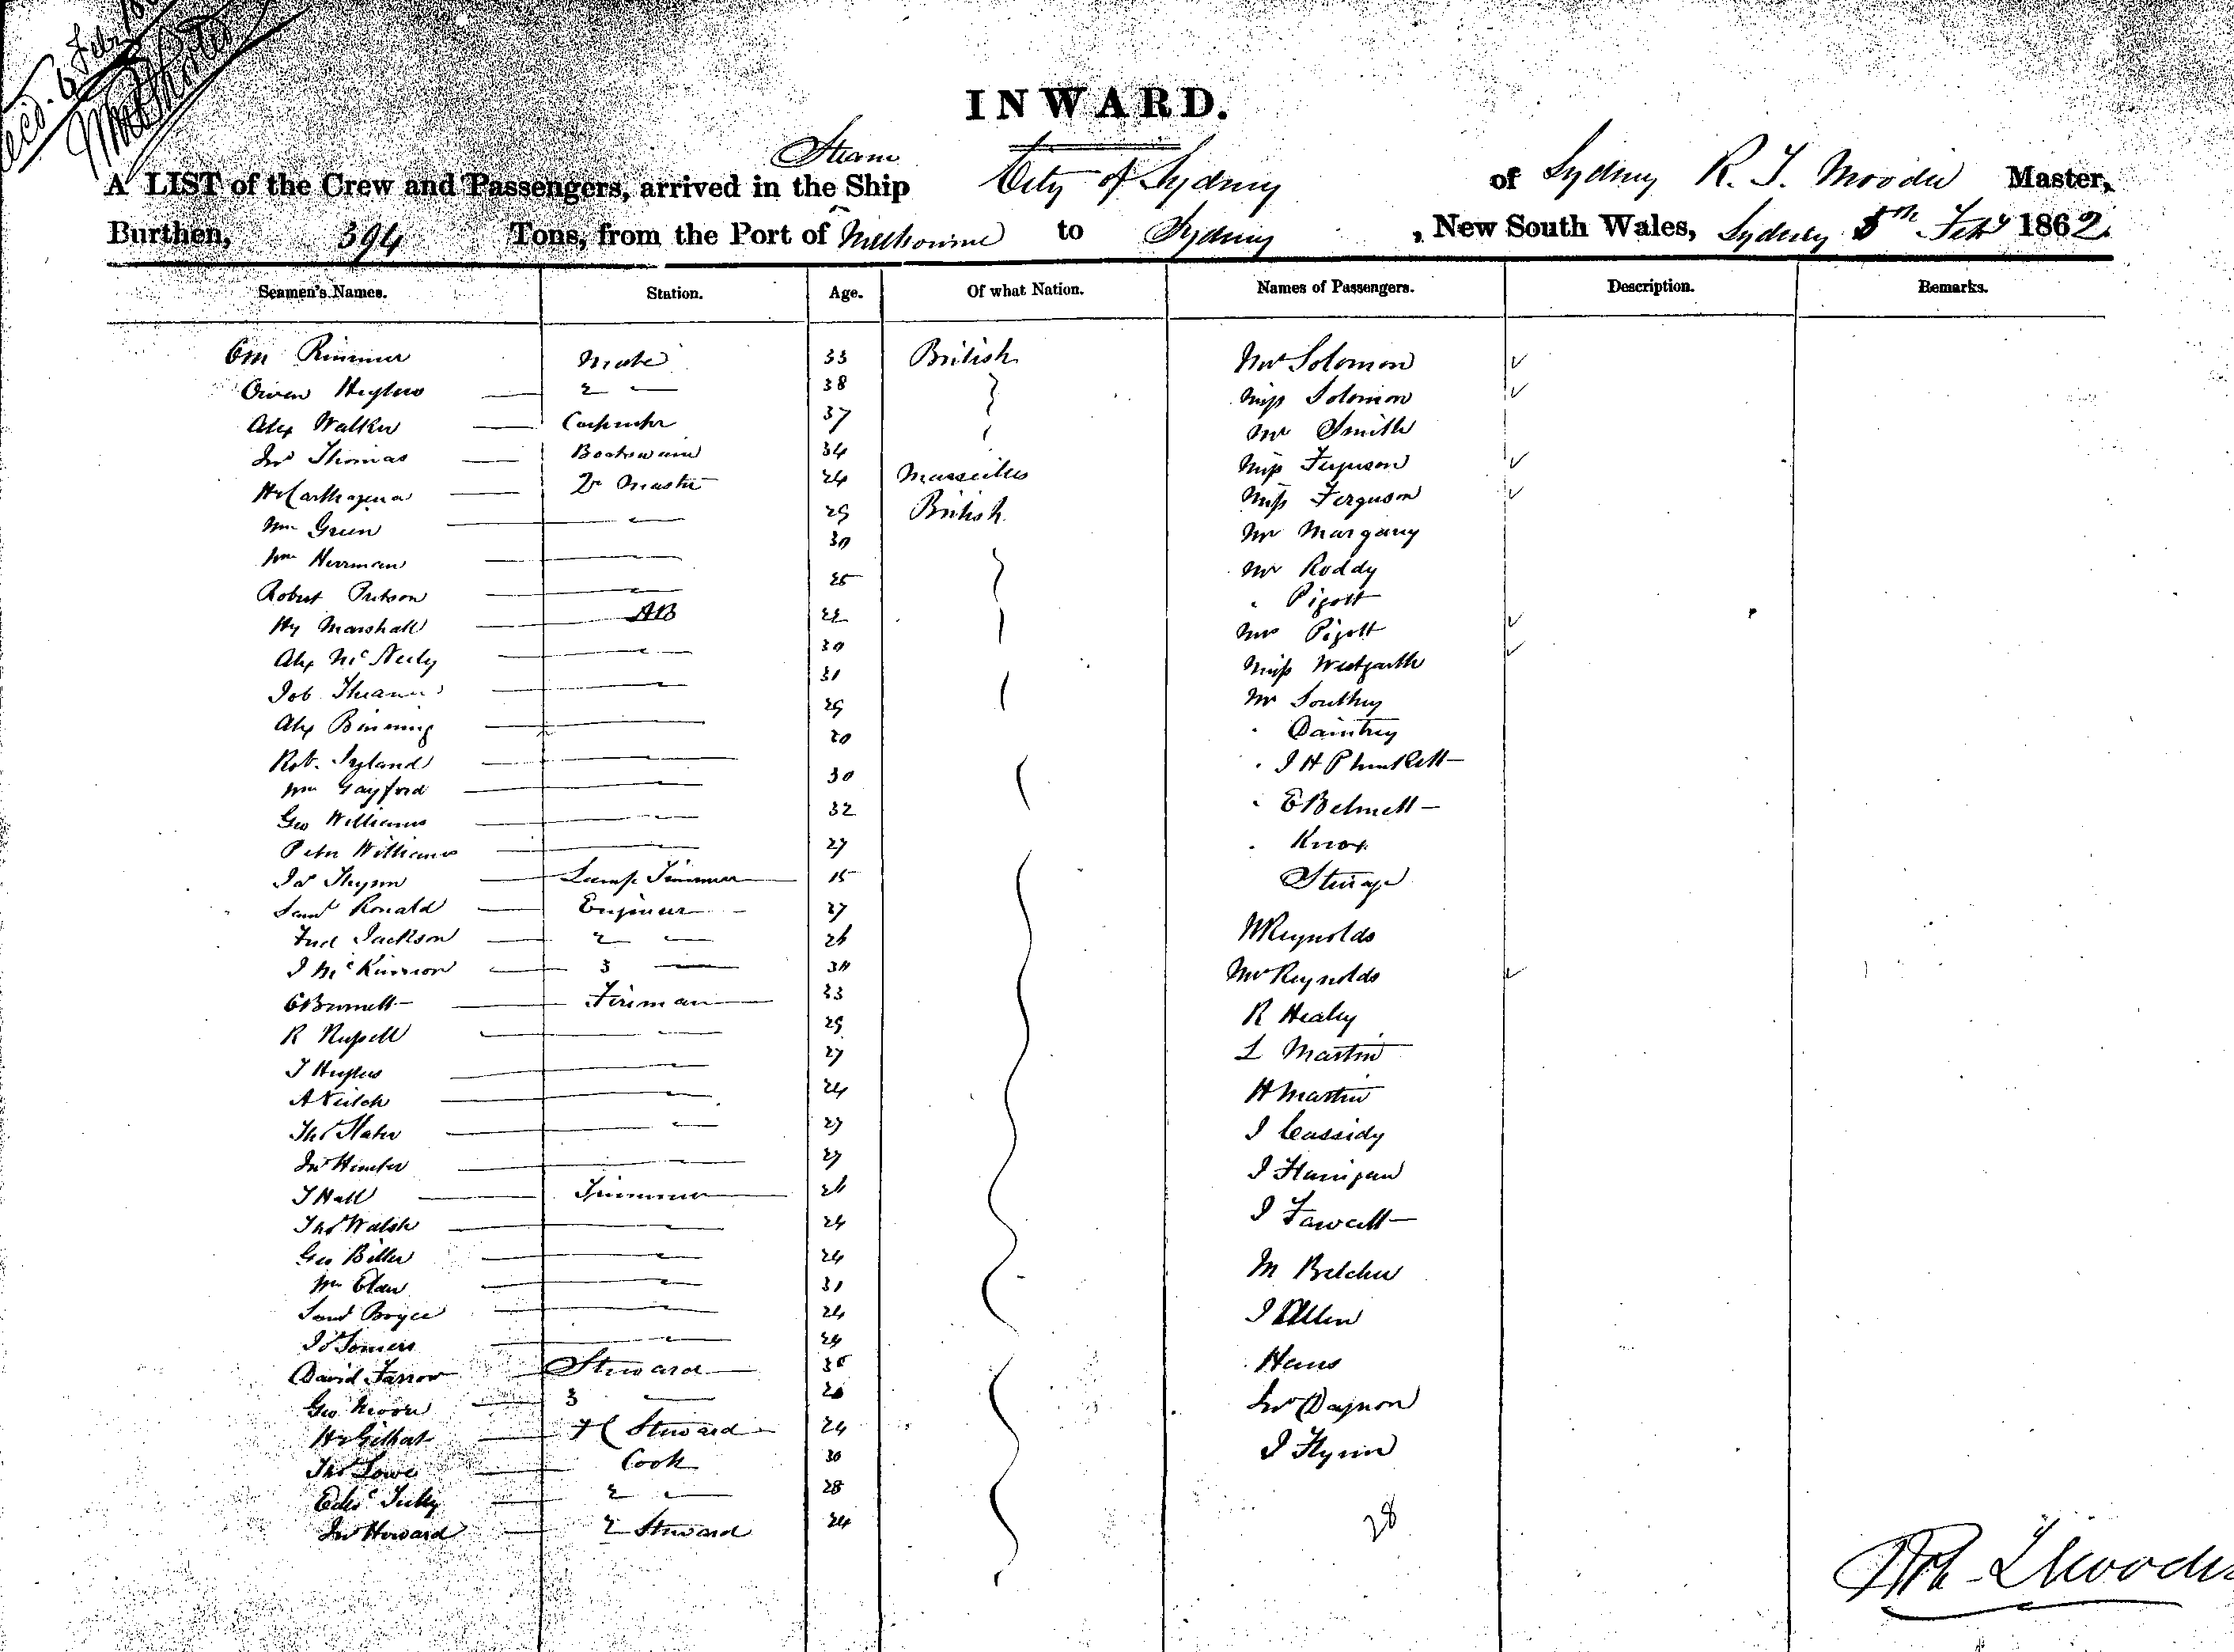 Recd. 6 Feb
INWARD.
Steam
A LIST of the Crew and Passengers, arrived in the Ship City of Sydney of Sydney R. T. Moodie Master,
Burthen, 394 Tons, from the Port of Melbourne to Sydney , New South Wales, Sydney 5th Feby 1862
Seamen's Names. Station. Age. Of what Nation. Names of Passengers. Description. Remarks.
Rimmer Mate 33 British Mrs Solomon
Owen Hughes 2 38 Miss Solomon
Alex Walker Carpenter 37 Mr Smith
Jno Thomas Boatswain 34 Miss Ferguson
Hy Carthagena Qr Master 24 Marseilles Miss Ferguson
Wm Green 29 British Mr Margany
Wm Herrman 30 Mr Roddy
Robert 25 " Pigott
Hy Marshall AB 22 Mrs Pigott
Alex McNeely 30 Miss Westgarth
Job 31 Mr Southey
Alex Binning 29 " Daintrey
Rob. 20 " J H Plunkett
Wm Gayford 30 " E
Geo Williams 32 " Knox
Peter Williams 27
Jas Lamp Trimmer 15 Steerage
Saml Ronald Engineer 27
Fred Jackson 2 26 W Reynolds
J McKinnon 3 30 Mrs Reynolds
Fireman 33 R Healey
R Russell 29 L Martin
J Hughes 27 H Martin
A Veitch 24 J Cassidy
Thos Slater 27 J Flanigan
Jno Hunter 27 J Fawcett
J Hall Trimmer 26 M Belcher
Thos Walsh 24 J Allen
Geo Biller 24 Hans
Wm 31 Jno
Saml Boyce 24 J Flynn
Jas Somers 24
David Farrow Steward 35
Geo Moore 3 20
Hy Steward 24
Thos Lowe Cook 30
Tully 2 28
Jno Howard 2 Steward 24
28